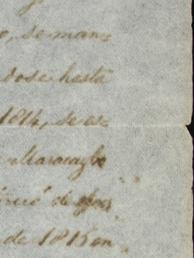 o, se man=
dose hasta
1814, se es
Maracaybo
de
de 1815 en